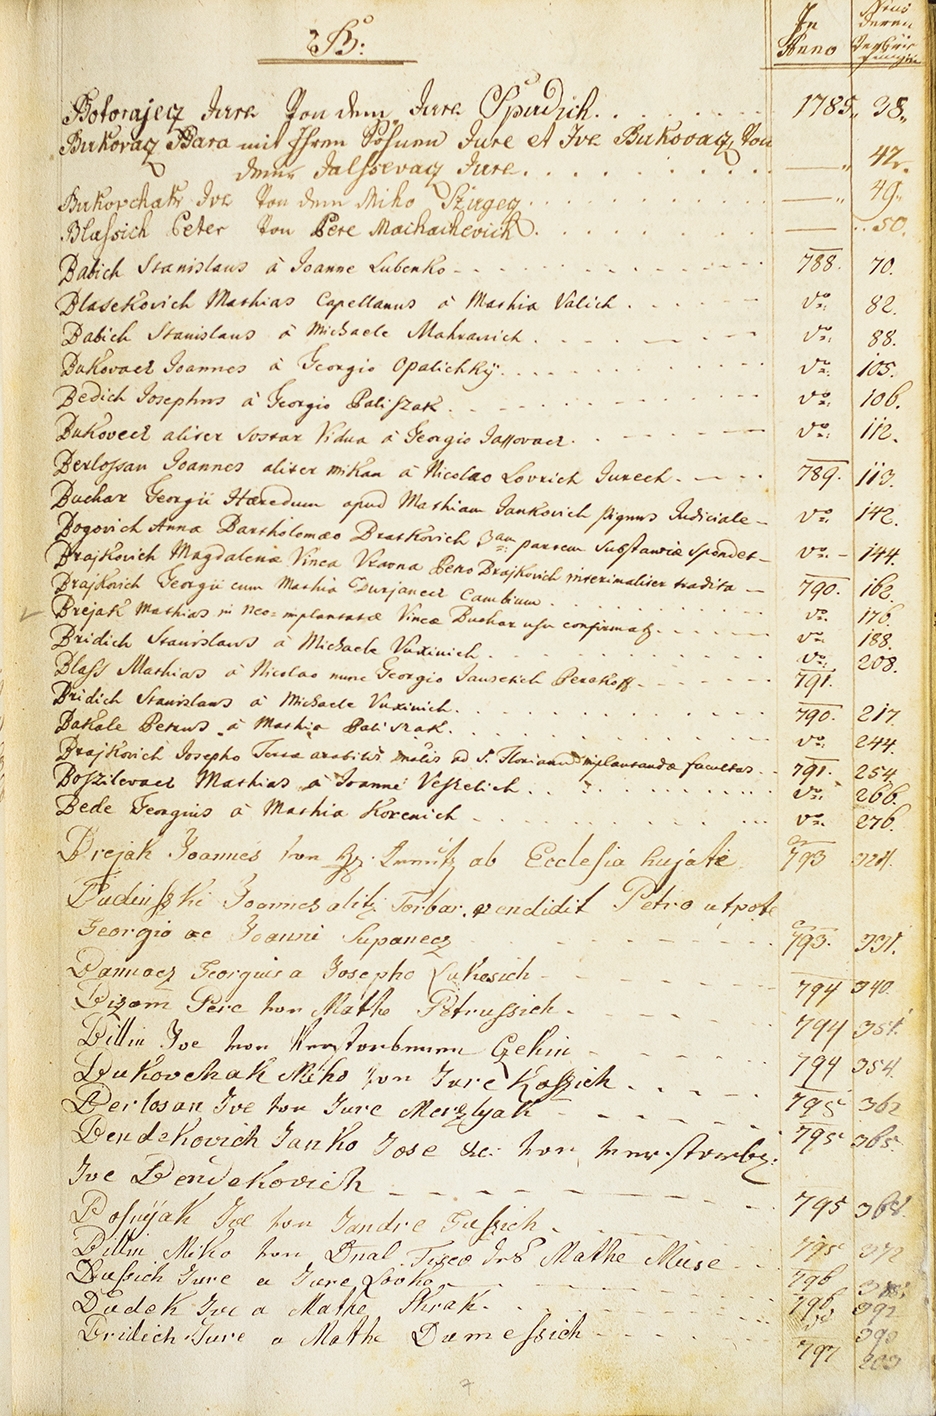 B:
In Anno
Botorajecz Jura Von dem Jura Spudich. 1785. 38.
Bukovacz Bara mit Ihren Söhnen Jure et Ive Bukovacz, Von
dem Jalssevacz Jure. — 42.
Bukovchak Ive Von dem Miko Czirgeg — 49.
Blassich Peter Von Pere Machachevich. — 50.
Babich Stanislaus à Joanne Lubenko 788. 70.
Blasekovich Mathias Capellanus à Mathia Valich do. 82.
Babich Stanislaus à Michaele Makranich do. 88.
Bukovacz Joannes à Georgio Opalichky do. 105.
Bedich Josephus à Georgio Paliszak do. 106.
Bukovecz aliter Sostar Vidua à Georgio Jassovacz do. 112.
Berlossan Joannes aliter Mikan à Nicolao Lovrich Jurech 789. 113.
Buchar Georgii Haeredum apud Mathiam Jankovich pignus Judiciale do. 142.
Bogovich Anna Bartholomaeo Bratkovich 3am partem Substantiae spondet do. 144.
Brajkovich Magdalena Vinea Vravna Petro Brajkovich interimaliter tradita 790. 162.
Brajkovich Georgii cum Mathia Durjanecz Cambium do. 176.
Brejak Mathias in Neo-implantatae Vineae Buchar usu confirmatz. do. 188.
Bridich Stanislaus à Michaele Vuxinich do. 208.
Blass Mathias à Nicolao nunc Georgio Jansetich Perekoff 791.
Bridich Stanislaus à Michaele Vuxinich. 790. 217.
Bakale Petrus à Mathia Paliszak. do. 244.
Brajkovich Josepho Terra arabilis ad S. Florianum implantandae facultas 791. 254.
Boszilevacz Mathias à Joanne Veszelich do. 266.
Bede Georgius à Mathia Korenich do. 276.
Brejak Joannes von ab Ecclesia hujate 793
Budinszki Joannes alit. Torbar vendidit Petro utpote
Georgio ac Joanni Supanecz 793. 331.
Bannacz Georgius a Josepho Lukosich 794 340.
Bizam Pere von Mathe Petrussich 794 351.
Billin Ive von Verstorbenen Gekin 794 354.
Bukovchak Miko von Jure Kossich 795 362
Berlosan Ive von Jure Merzlyak 795 365.
Bendekovich Janko Jose &c: von verstorbz.
Ive Bendekovich 795 368.
Bosnyak Ive von Jandre Tussich 795 372
Billin Miko von Mathe Muse 796
Bussich Jure a Jure Lovko 796 392
Budek Ive a Mathe Skrak. 393
Bridich Jure a Mathe Damessich 797 203
7